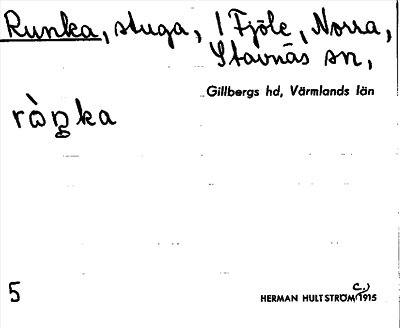 Runka, stuga, 1 Fjöle, Norra,
Stavnäs sn,
Gillbergs hd, Värmlands län
ràŋka
5
HERMAN HULTSTRÖM (c.) 1915